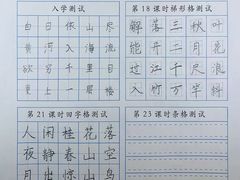 入学测试
白日依山尽
黄河入海流
欲穷千里目
更上一层楼
第18课时梯形格测试
解落三秋叶
能开二月花
过江千尺浪
入竹万竿斜
第21课时回字格测试
人闲桂花落
夜静春山空
月出惊山鸟
第23课时条格测试